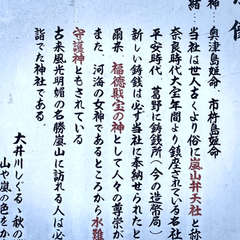 神　奥津島姫命．市杵島姫命
緒　当社は世人古くより俗に嵐山弁天社と称
奈良時代大宝年間より鎮座されている名社
平安時代、葛野に鋳銭所へ今の造幣局
新しい鋳銭は必ず当社に奉納せられたと
爾来、福徳財宝の神として人々の尊崇が
また、河海の女神であるところから水難
守護神ともされている
古来風光明媚の名勝嵐山に訪れる人は必
詣でた神社である
大井川しぐるゝ秋の
山や嵐の色をか